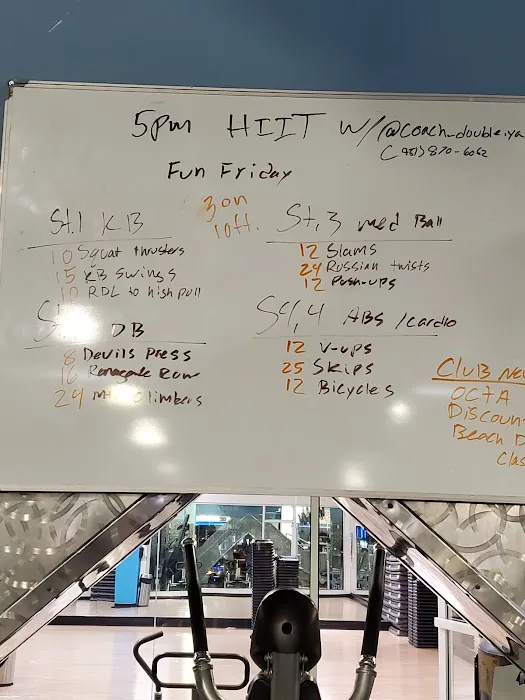 5pm HIIT W/@coach_double.ya
(951) 870-6062
Fun Friday
3 on
1 off.
St.1 KB
10 Squat thrusters
15 KB Swings
10 RDL to high pull
DB
8 Devils Press
16 Renegade Row
24 Mt. Climbers
St,3 med Ball
12 Slams
24 Russian twists
12 Push-ups
St,4 ABS/cardio
12 V-ups
25 Skips
12 Bicycles
Club New
OCTA
Discoun
Beach D
Clas